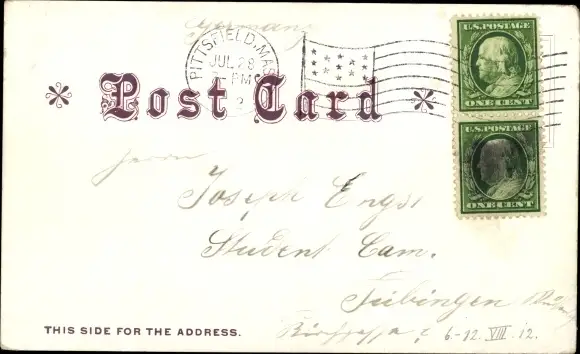 Germany
PITTSFIELD, MASS
JUL 28
PM
U.S. POSTAGE
ONE CENT
Post Card
U.S. POSTAGE
ONE CENT
Herrn
Joseph Engst
Student Cam.
Tübingen
THIS SIDE FOR THE ADDRESS.
6-12. VIII. 12.